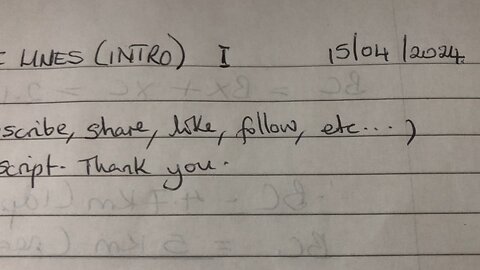 E LINES (INTRO) I 15/04/2024
scribe, share, like, follow, etc...)
script. Thank you.